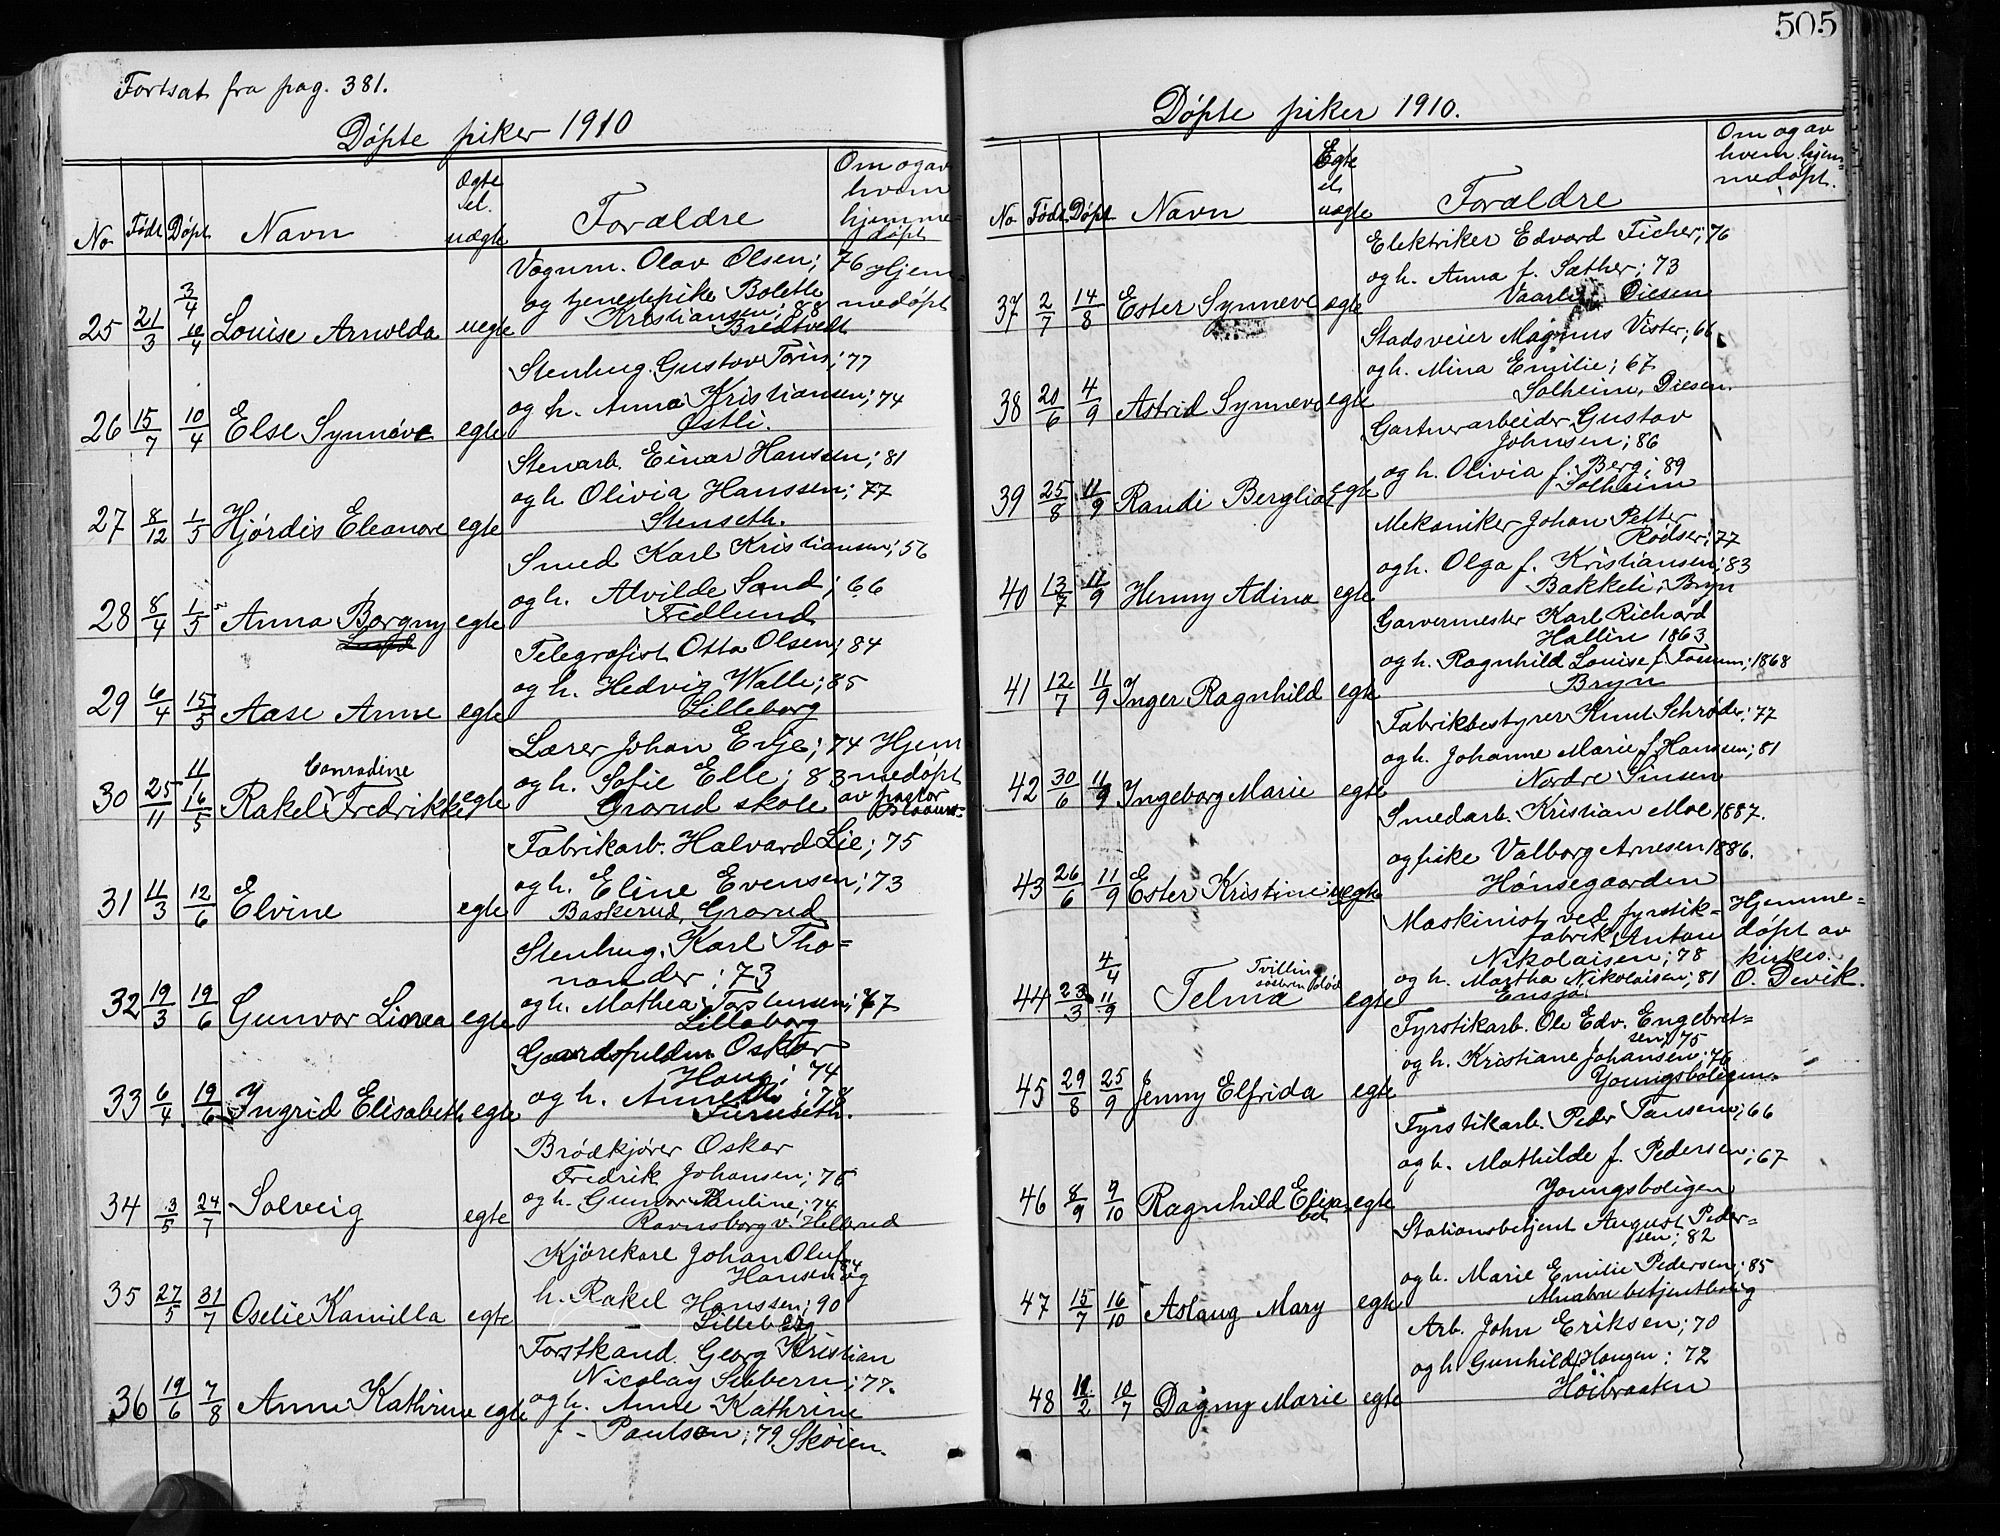 505
Fortsat fra pag. 381.
Døpte piker 1910
No Født Døpt Navn Ægte el. uægte Forældre Om og av hvem hjemmedøpt
25 21/3 3/4 Louise Arnolda uegte Vognm. Olav Olsen; 76 Hjem-
og tjenestepike Bolette medøpt
Kristiansen; 88
Bredtvedt
26 15/7 10/4 Else Synnøve egte Stenhug. Gustav ; 77
og h. Anna Kristiansen; 74
Østli.
27 8/12 1/5 Hjørdis Eleanore egte Stenarb. Einar Hanssen; 81
og h. Olivia Hanssen; 77
Stenseth.
28 8/4 1/5 Anna Borgny egte Smed Karl Kristiansen; 56
og h. Alvilde Sand; 66
Fredlund
29 6/4 15/5 Aase Anne egte Telegrafist Otto Olsen; 84
og h. Hedvig Walle; 85
Lilleborg
30 25/11 11/1 16/5 Rakel Conradine Fredrikke egte Lærer Johan Evje; 74 Hjem-
og h. Sofie Elle; 83 medøpt
Grorud skole av pastor
31 11/3 12/6 Elvine egte Fabrikarb. Halvard Lie; 75
og h. Eline Evensen; 73
Baskerud, Grorud
32 19/3 19/6 Gunvor Linea egte Stenhug. Karl Tho-
nander; 73
og h. Mathea Torstensen; 67
Lilleborg
33 6/4 19/6 Ingrid Elisabeth egte Gaardsfuldm Oskar
Haug; 74
og h. Annette; 78
Furuseth.
34 3/5 24/7 Solveig egte Brødkjører Oskar
Fredrik Johansen; 76
og h. Gunvor Pauline; 74
Ravnsborg v. Hellerud
35 27/5 31/7 Oselie Kamilla egte Kjørekare Johan Oluf
Hansen 84 og
h. Rakel Hanssen; 90
Lilleberg
36 19/6 7/8 Anne Kathrine egte Forstkand. Georg Kristian
Nicolay ; 77.
og h. Anne Kathrine
f. Paulsen; 79 Skøien.
Døpte piker 1910.
No Født Døpt Navn Egte el. uegte Forældre Om og av hvem hjemmedøpt.
37 2/7 14/8 Ester Synneve egte Elektriker Edvard Ficher; 76
og h. Anna f. Sæther; 73
Vaarli Disen
38 20/6 4/9 Astrid Synneve egte Stadsveier Magnus Vister; 66
og h. Mina Emilie; 67
Solheim, Disen.
39 25/8 11/9 Randi Bergliot egte Gartnerarbeider Gustav
Johnsen; 86
og h. Olivia f. Berg; 89
Solheim
40 13/7 11/9 Henny Adina egte Mekaniker Johan Petter
Rødser; 77
og h. Olga f. Kristiansen; 83
Bakkeli, Bryn
41 12/7 11/9 Inger Ragnhild egte Garvermester Karl Richard
Hallin 1863
og h. Ragnhild Louise f. Fossum; 1868
Bryn
42 30/6 11/9 Ingeborg Marie egte Fabrikbestyrer Knut Schrøder; 77
og h. Johanne Marie f. Hansen; 81
Nordre Sinsen
43 26/6 11/9 Ester Kristine uegte Smedarb. Kristian Moe 1887.
og pike Valborg Arnesen 1886.
Hønsegaarden
44 23/3 4/4 11/9 Telma Tvilling egte Maskinist ved fyrstik- Hjemme-
fabrik Anton døpt av
Nikolaisen; 78 kirkes.
og h. Martha Nikolaisen; 81 O. Devik.
Ensjø.
45 29/8 25/9 Jenny Elfrida egte Fyrstikarb. Ole Edv. Engebret-
sen; 75
og h. Kristiane Johansen; 76
Youngsboligen.
46 8/9 9/10 Ragnhild Elisabet egte Fyrstikarb. Peder Jansen; 66
og h. Mathilde f. Pedersen; 67
Youngsboligen
47 15/7 16/10 Aslaug Mary egte Stationsbetjent August Peder-
sen; 82
og h. Marie Emilie Pedersen; 85
Alnabru betjentbolig
48 11/2 10/7 Dagny Marie egte Arb. John Eriksen; 70
og h. Gunhild Haugen; 72
Høibraaten